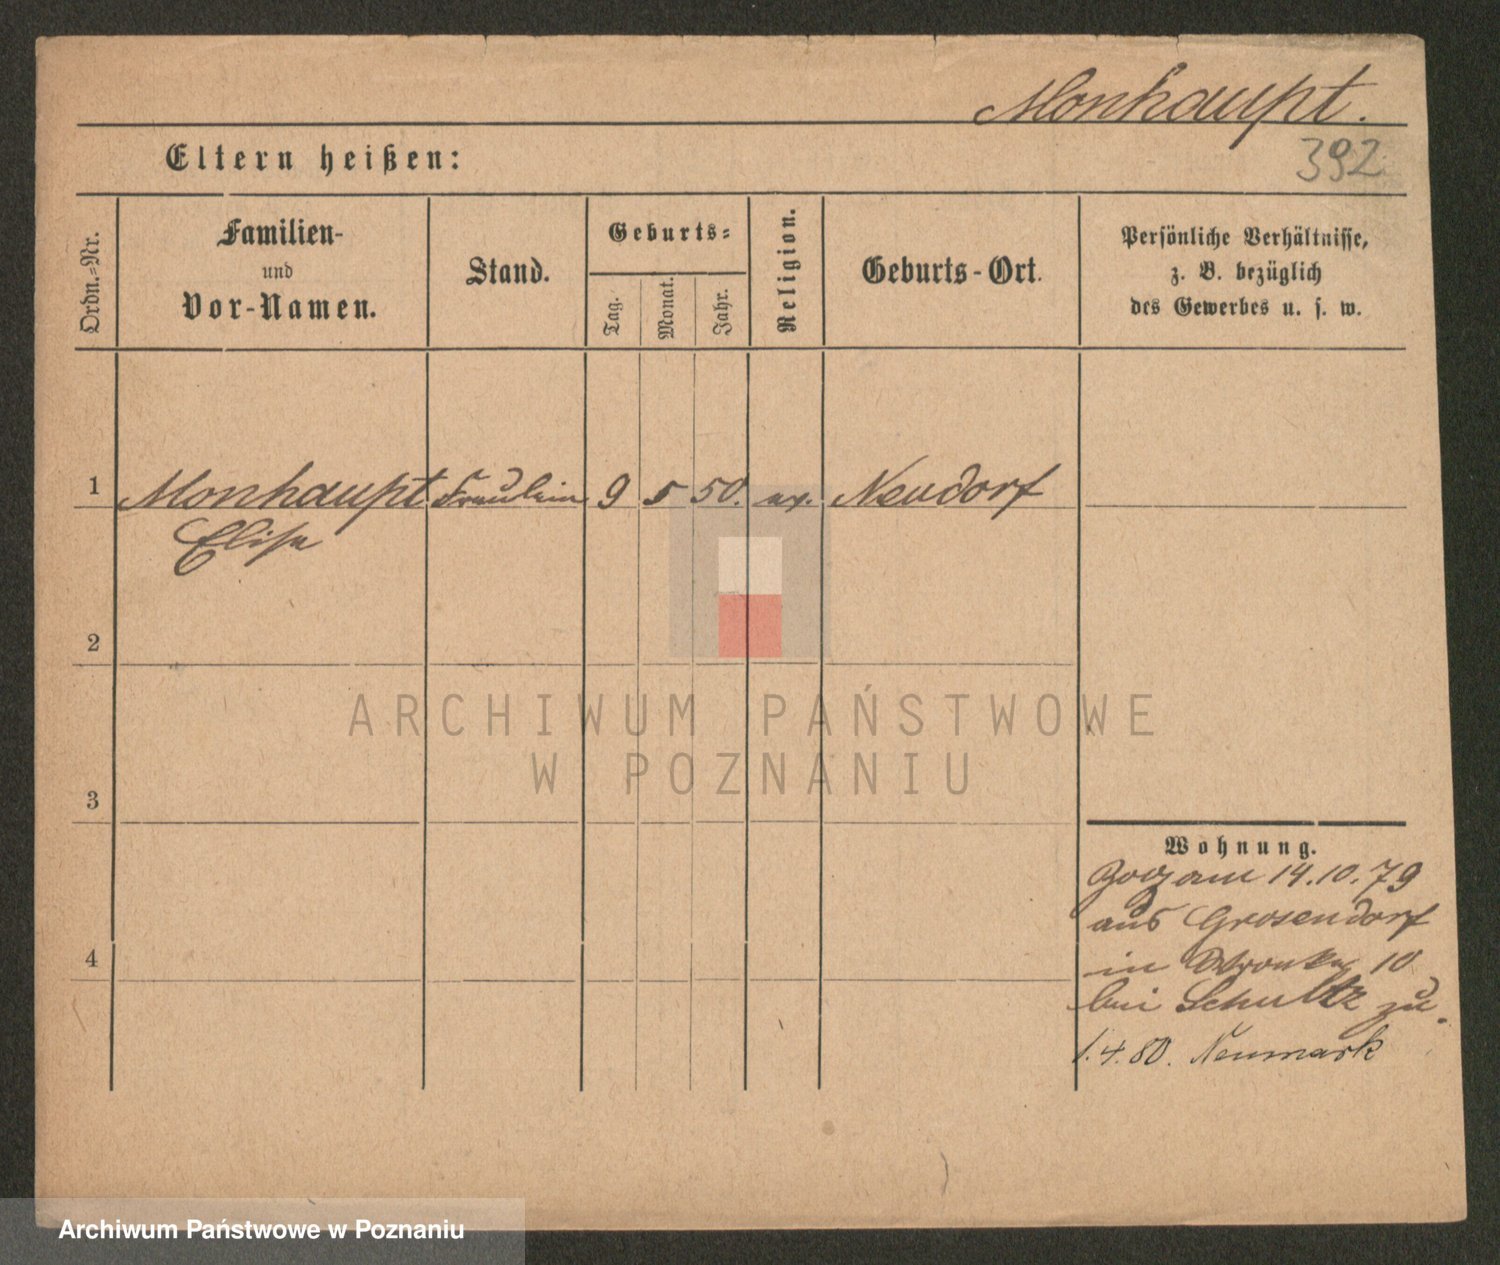 Monhaupt.
392
Eltern heißen:
Ordn.=Nr.
Familien-
und
Vor-Namen.
Stand.
Geburts=
Tag.
Monat.
Jahr.
Religion.
Geburts-Ort.
Persönliche Verhältnisse,
z. B. bezüglich
des Gewerbes u. s. w.
1 Monhaupt Fräulein 9 5 50. ev. Neudorf
Elise
2
3
4
Wohnung.
Zog am 14.10.79
aus Grosendorf
in 10
bei Schultz zu.
1.4.80. Neumark
ARCHIWUM PAŃSTWOWE
W POZNANIU
Archiwum Państwowe w Poznaniu